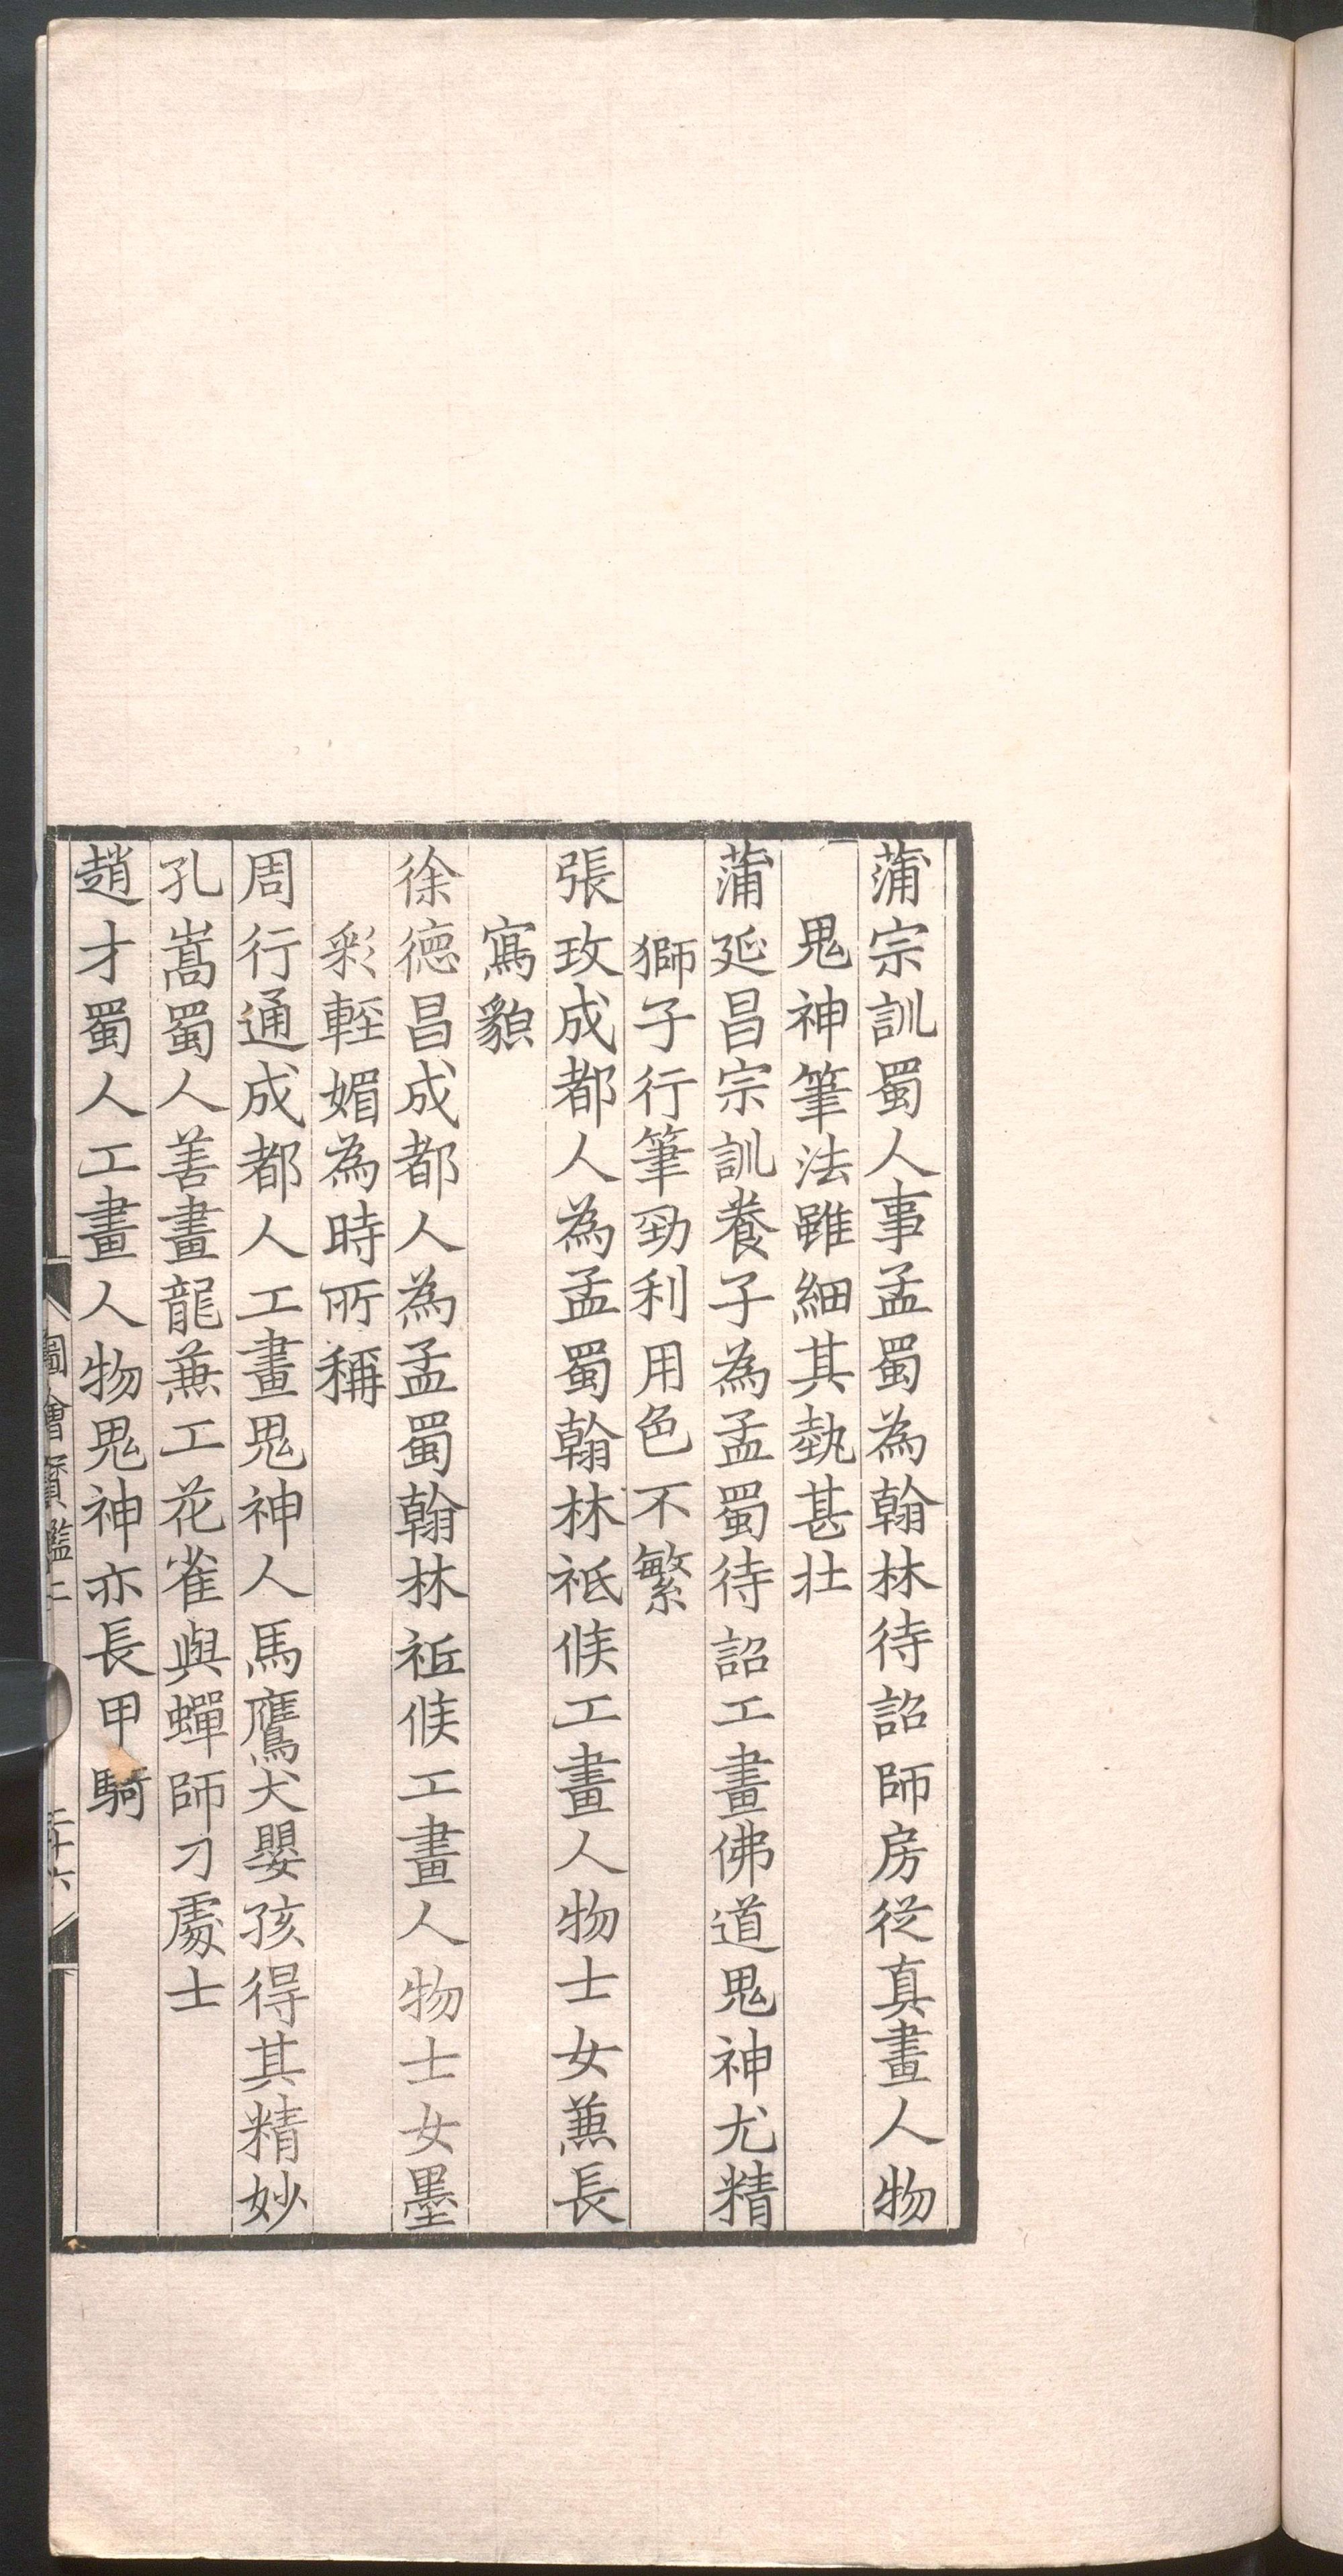 蒲宗訓蜀人事孟蜀為翰林待詔師房從真畫人物
鬼神筆法雖細其埶甚壯
蒲延昌宗訓養子為孟蜀待詔工畫佛道鬼神尤精
獅子行筆勁利用色不繁
張玫成都人為孟蜀翰林祗候工畫人物士女蒹長
寫貌
徐德昌成都人為孟蜀翰林祗候工畫人物士女墨
彩輊媚為時所稱
周行通成都人工畫鬼神人馬鷹犬嬰孩得其精妙
孔嵩蜀人善畫龍蒹工花雀與蟬師刁處士
趙才蜀人工畫人物鬼神亦長甲騎
圖繪寶鑑二
二十六